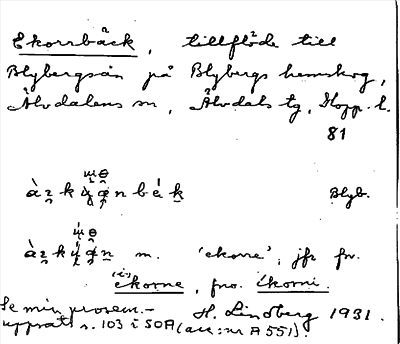 Ekorrbäck, tillflöde till
Blybergsån på Blybergs hemskog,
Älvdalens sn, Älvdals tg, Kopp. l.
81
Blyb.
m. 'ekorre', jfr fv.
ekorne, fno. íkorni.
Se min prosem.-
uppsats s. 103 i SOA (acc: nr A 551).
H. Lindberg 1931.